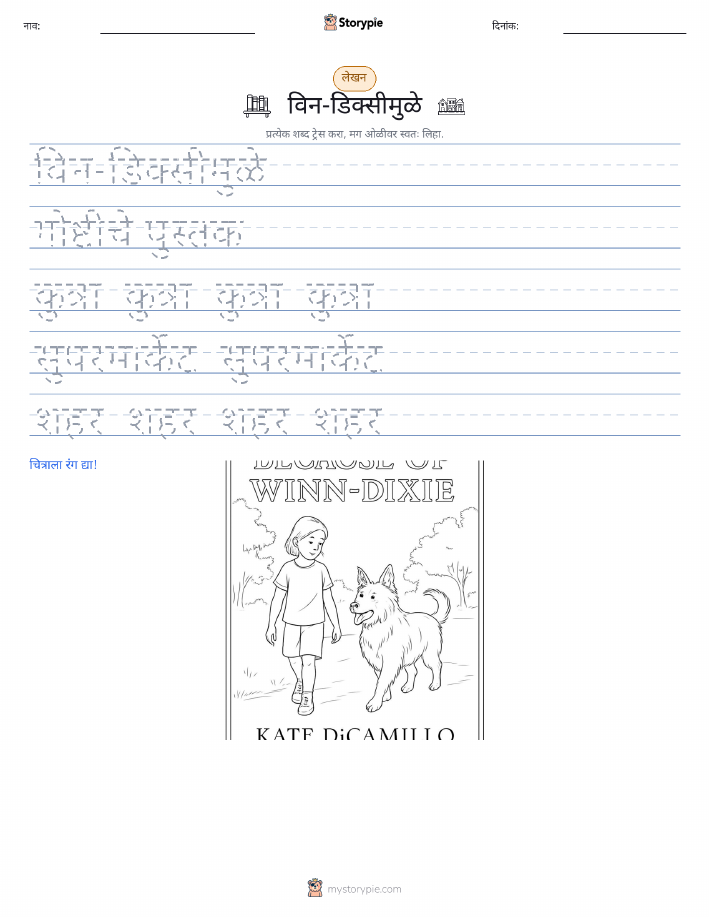 नाव:
Storypie
दिनांक:
लेखन
विन-डिक्सीमुळे
प्रत्येक शब्द ट्रेस करा, मग ओळीवर स्वतः लिहा.
विन-डिक्सीमुळे
गोष्टीचे पुस्तक
कुत्रा कुत्रा कुत्रा कुत्रा
सुपरमार्केट सुपरमार्केट
शहर शहर शहर शहर
चित्राला रंग द्या!
BECAUSE OF
WINN-DIXIE
KATE DiCAMILLO
mystorypie.com